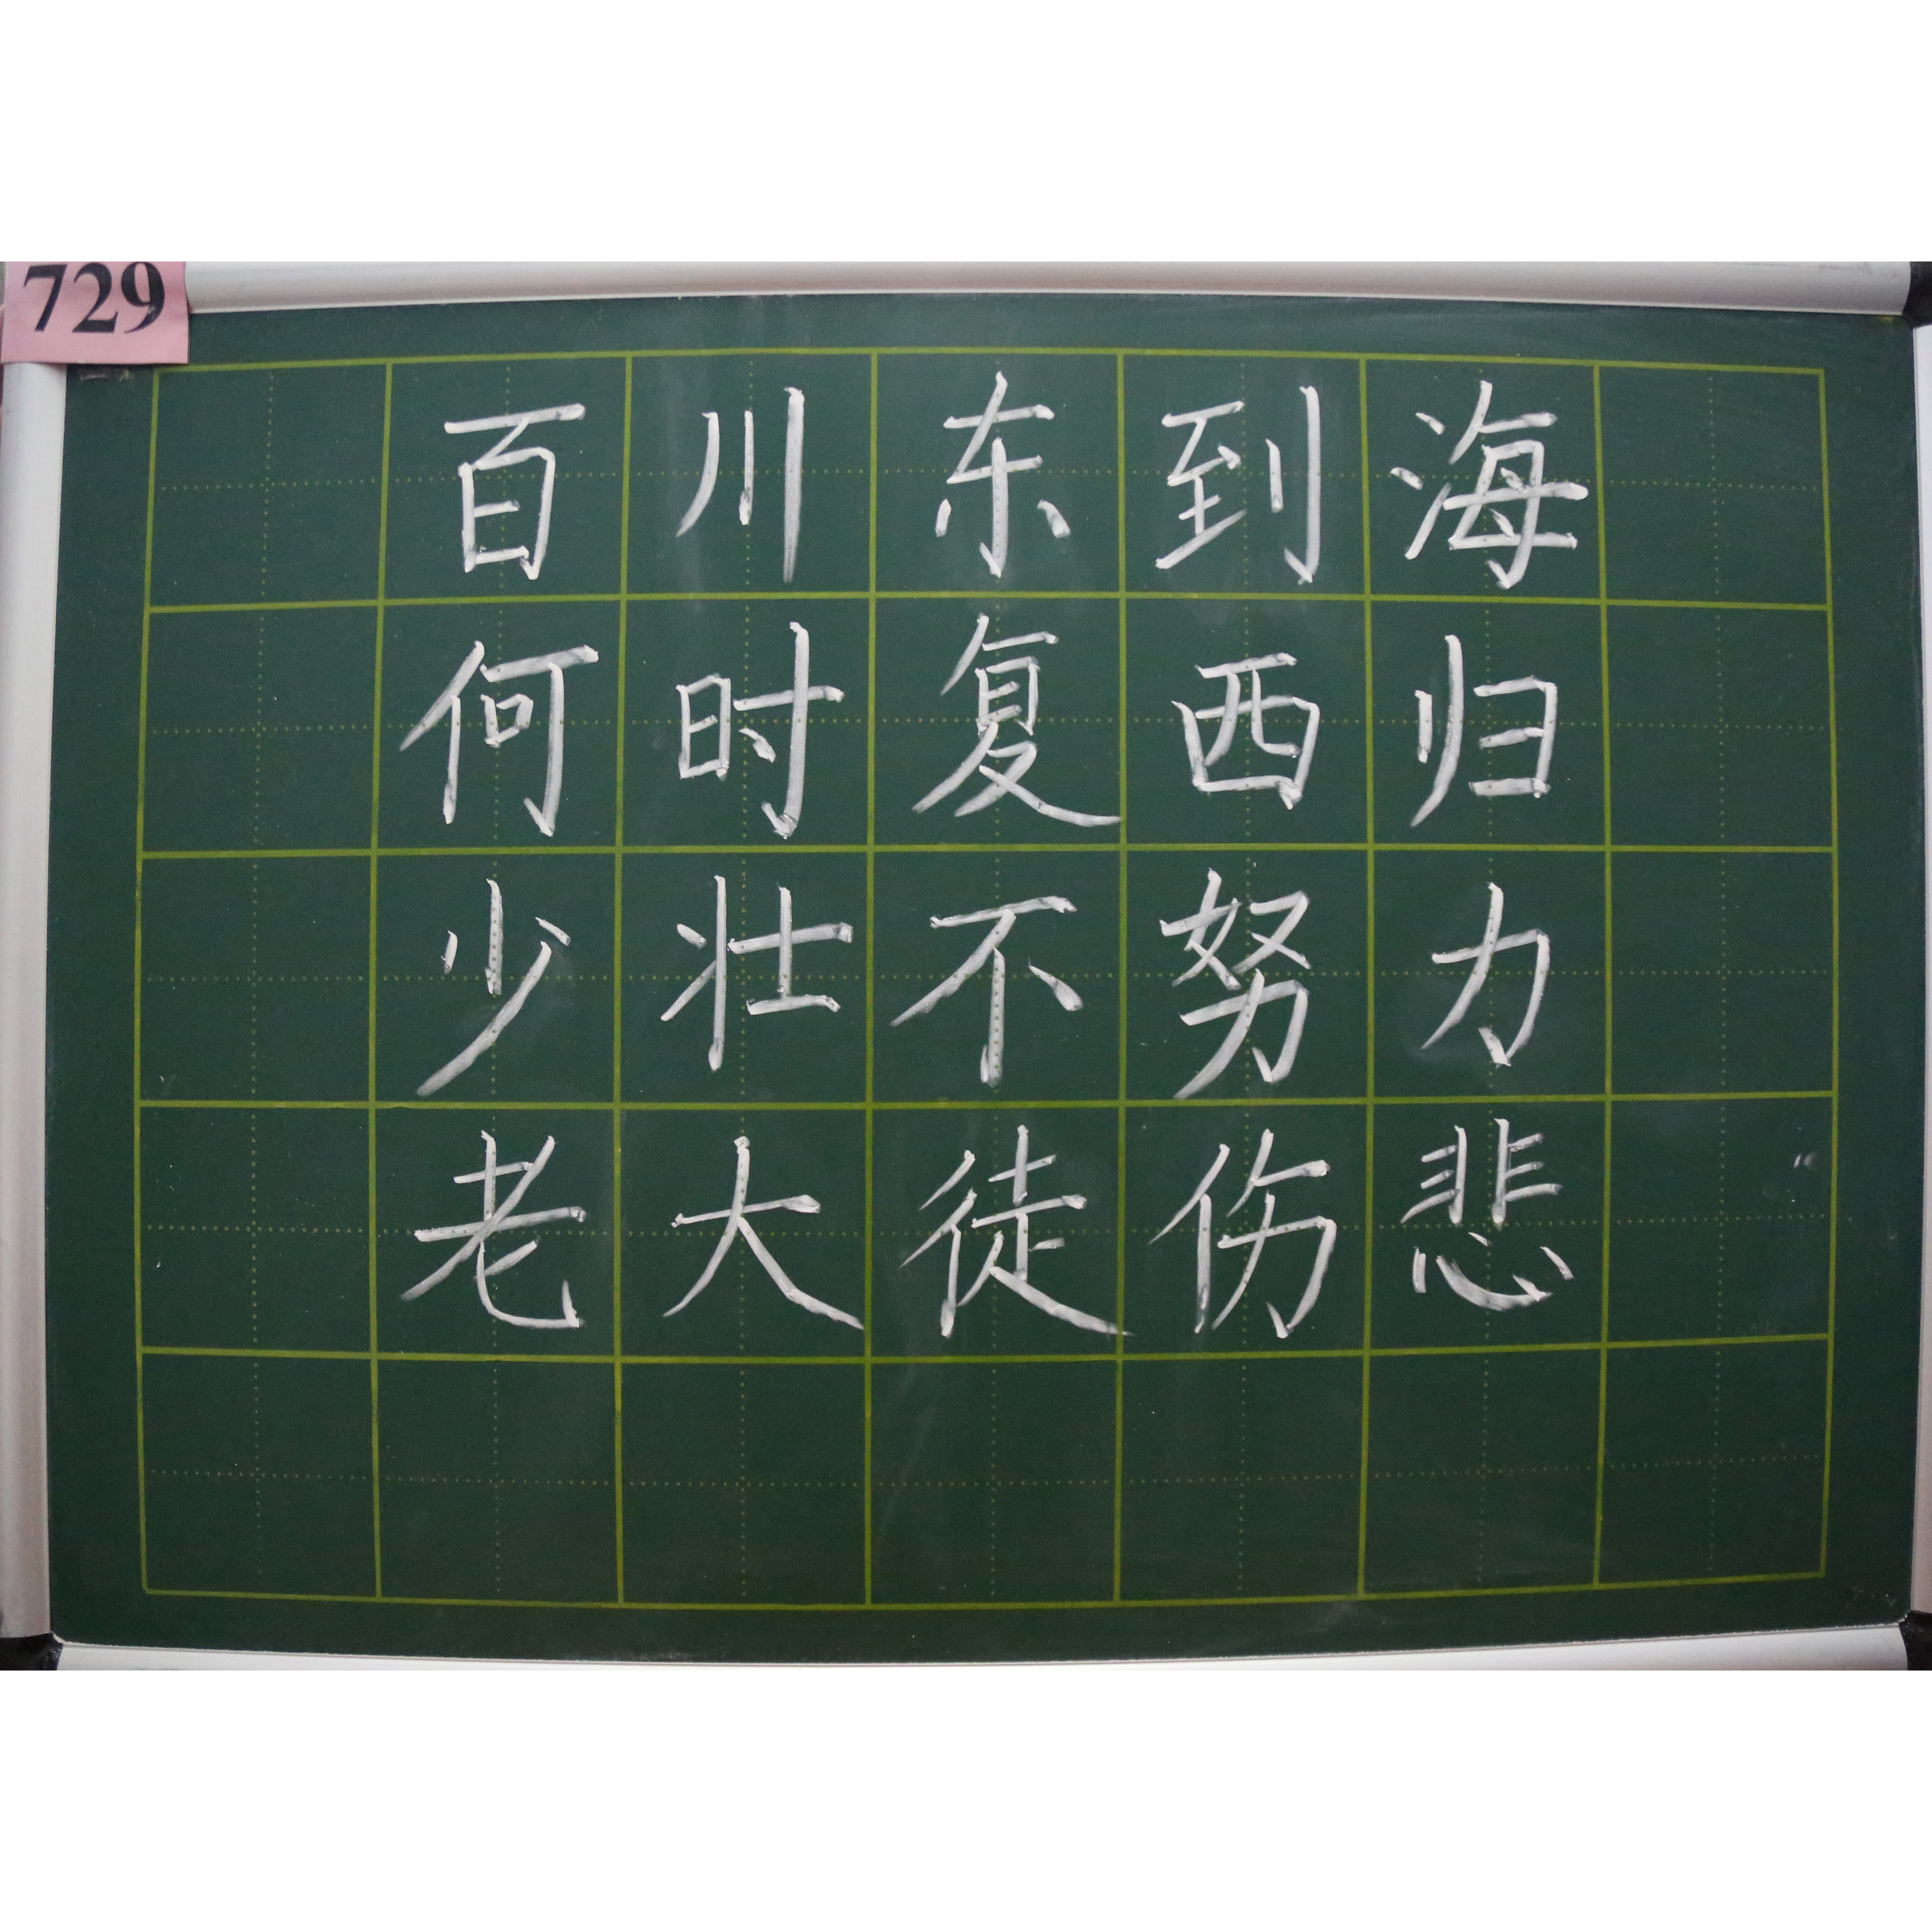 729
百川东到海
何时复西归
少壮不努力
老大徒伤悲